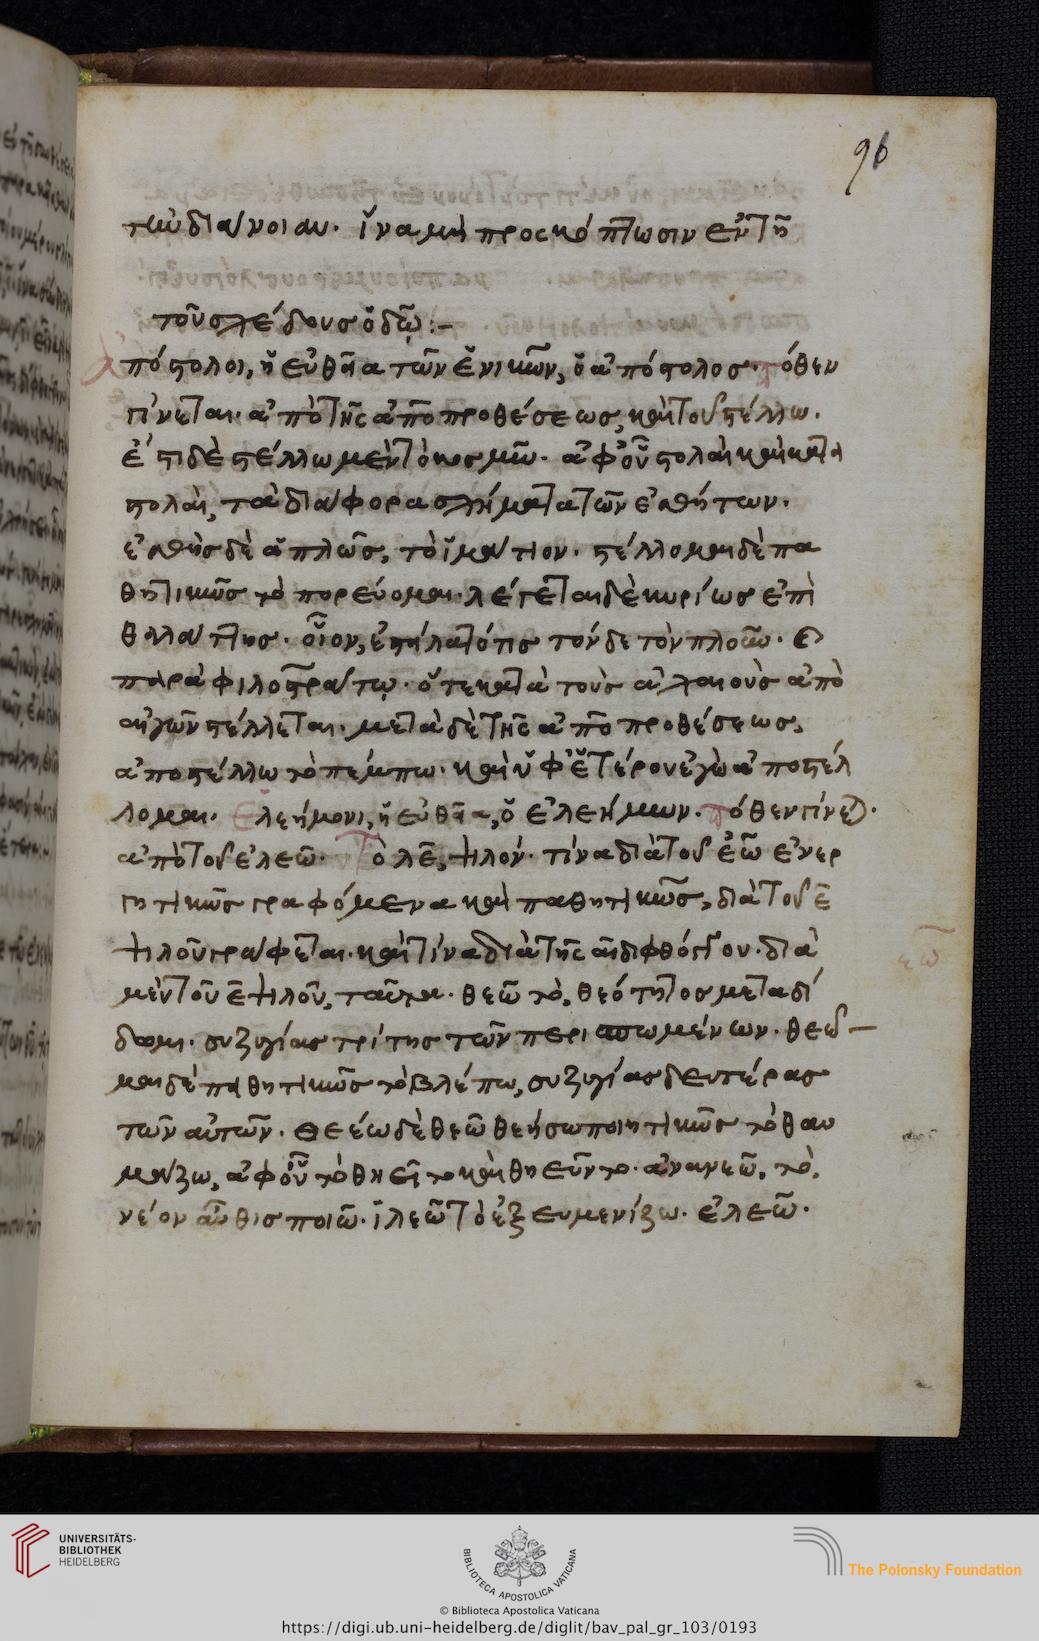 96
τὴν διάνοιαν. ἵνα μὴ προσκόπτωσιν ἐν τῇ
τοῦ σχέδους ὁδῷ :-
Ἀπόστολοι, ἡ εὐθεῖα τῶν ἑνικῶν, ὁ ἀπόστολος. πόθεν
γίνεται. ἀπὸ τῆς ἀπὸ προθέσεως, καὶ τοῦ στέλλω.
ἔστι δὲ στέλλω μὲν τὸ κοσμῶ. ἀφ' οὗ στολαὶ καὶ κατα
στολαὶ, τὰ διάφορα σχήματα τῶν ἐσθήτων.
ἐσθὴς δὲ ἁπλῶς, τὸ ἱμάτιον. στέλλομαι δὲ πα
θητικῶς τὸ πορεύομαι. λέγεται δὲ κυρίως ἐπὶ
θαλάττης. οἷον, ἐστείλατό τις τόνδε τὸν πλοῦν.
παρὰ φιλοστράτῳ. ὅτε κατὰ τοὺς ἀχαιοὺς ἀπὸ
αἰγῶν στέλλεται. μετὰ δὲ τῆς ἀπὸ προθέσεως,
ἀποστέλλω τὸ πέμπω. καὶ ὑφ' ἑτέρου ἐγὼ ἀποστέλ
λομαι. Ἐλεήμονι, ἡ εὐθεῖα, ὁ ἐλεήμων. πόθεν γίνεται.
ἀπὸ τοῦ ἐλεῶ. Τὸ λε, ψιλόν. τίνα διὰ τοῦ εω ἐνερ
γητικῶς γραφόμενα καὶ παθητικῶς, διὰ τοῦ ε
ψιλοῦ γράφεται. καὶ τίνα διὰ τῆς αι διφθόγγου. διὰ
εω
μὲν τοῦ ε ψιλοῦ, ταῦτα. θεῶ τὸ, θεότητος μεταδί
δωμι. συζυγίας τρίτης τῶν περισπωμένων. θεῶ
μαι δὲ παθητικῶς τὸ βλέπω, συζυγίας δευτέρας
τῶν αὐτῶν. θεέω δὲ θεῶ θεήσω ποιητικῶς τὸ θαυ
μάζω, ἀφ' οὗ τὸ θηεῖτο καὶ θηεῦντο. ἀνανεῶ, τὸ,
νέον αὖθις ποιῶ. ἱλεῶ τὸ ἐξευμενίζω. ἐλεῶ.
UNIVERSITÄTS-
BIBLIOTHEK
HEIDELBERG
BIBLIOTECA APOSTOLICA VATICANA
The Polonsky Foundation
© Biblioteca Apostolica Vaticana
https://digi.ub.uni-heidelberg.de/diglit/bav_pal_gr_103/0193